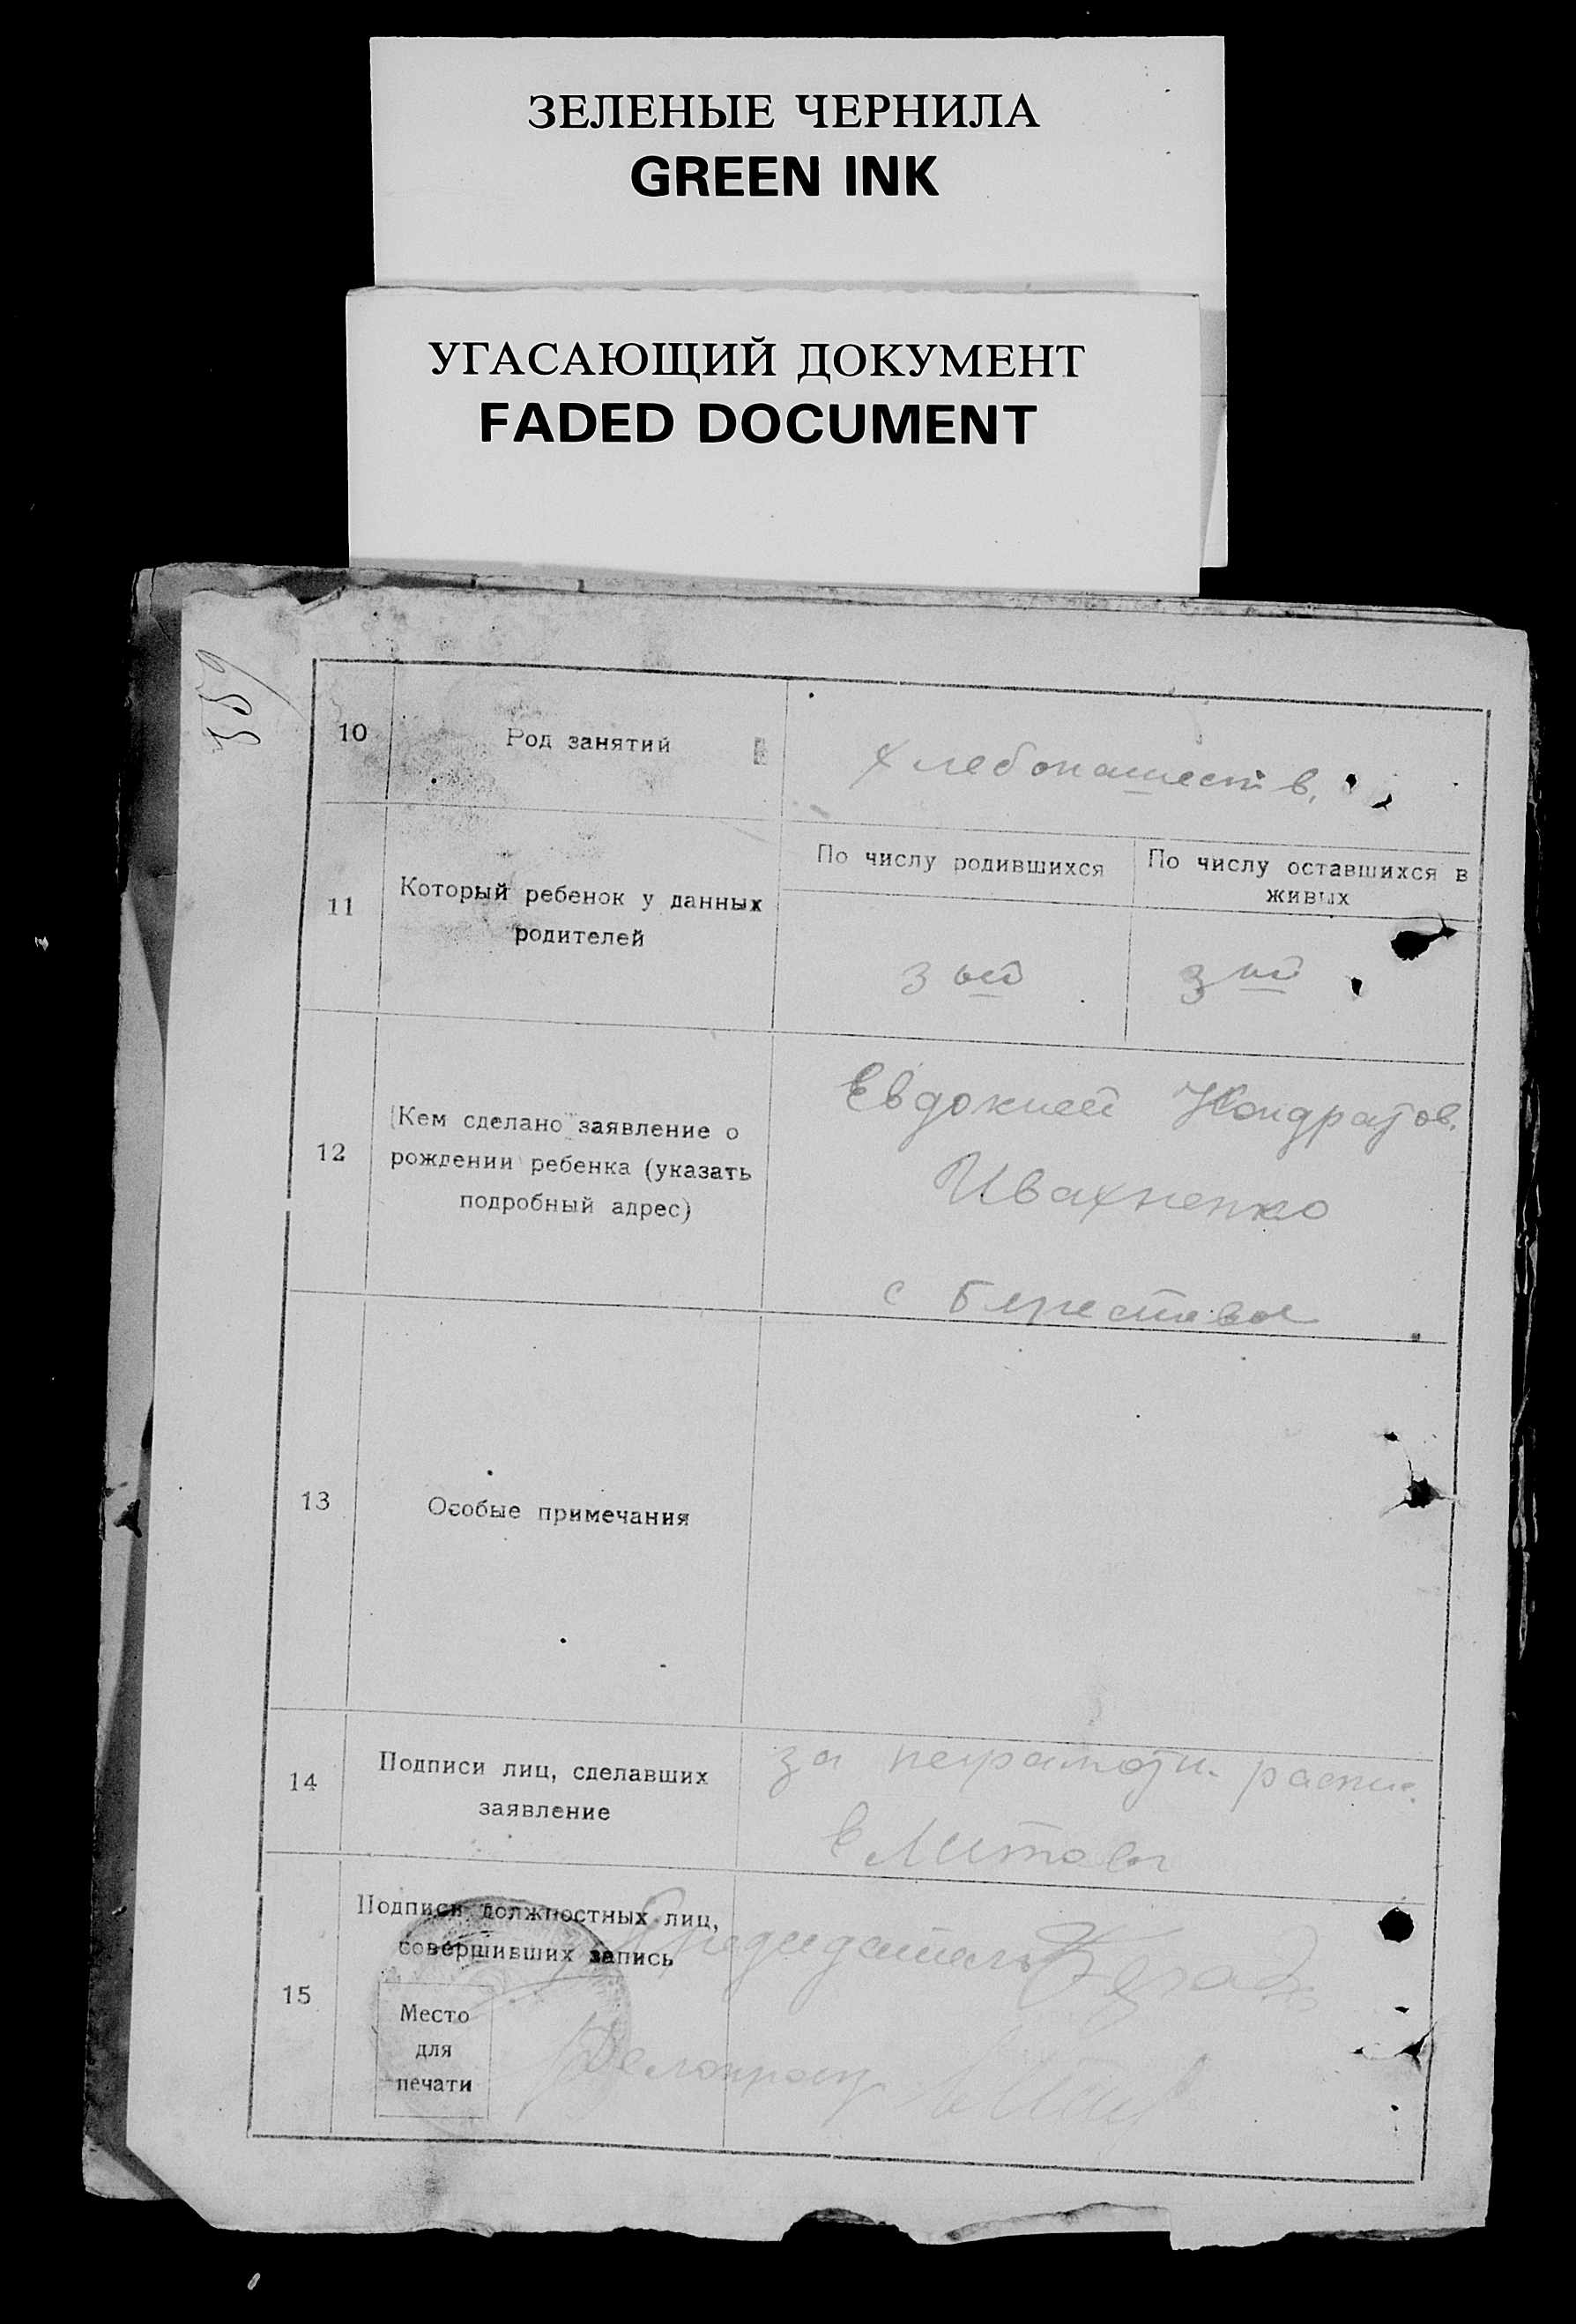 ЗЕЛЕНЫЕ ЧЕРНИЛА
GREEN INK
УГАСАЮЩИЙ ДОКУМЕНТ
FADED DOCUMENT
359
10
Род занятий
хлебопашеств.
11
Который ребенок у данных
родителей
По числу родившихся
3 ий
По числу оставшихся в
живых
3 ий
12
Кем сделано заявление о
рождении ребенка (указать
подробный адрес)
Евдокией Кондратов.
Ивахненко
с
13
Особые примечания
14
Подписи лиц, сделавших
заявление
за неграмотн. распис.
15
Подписи должностных лиц,
совершивших запись
Место
для
печати
Председатель
Делопроиз